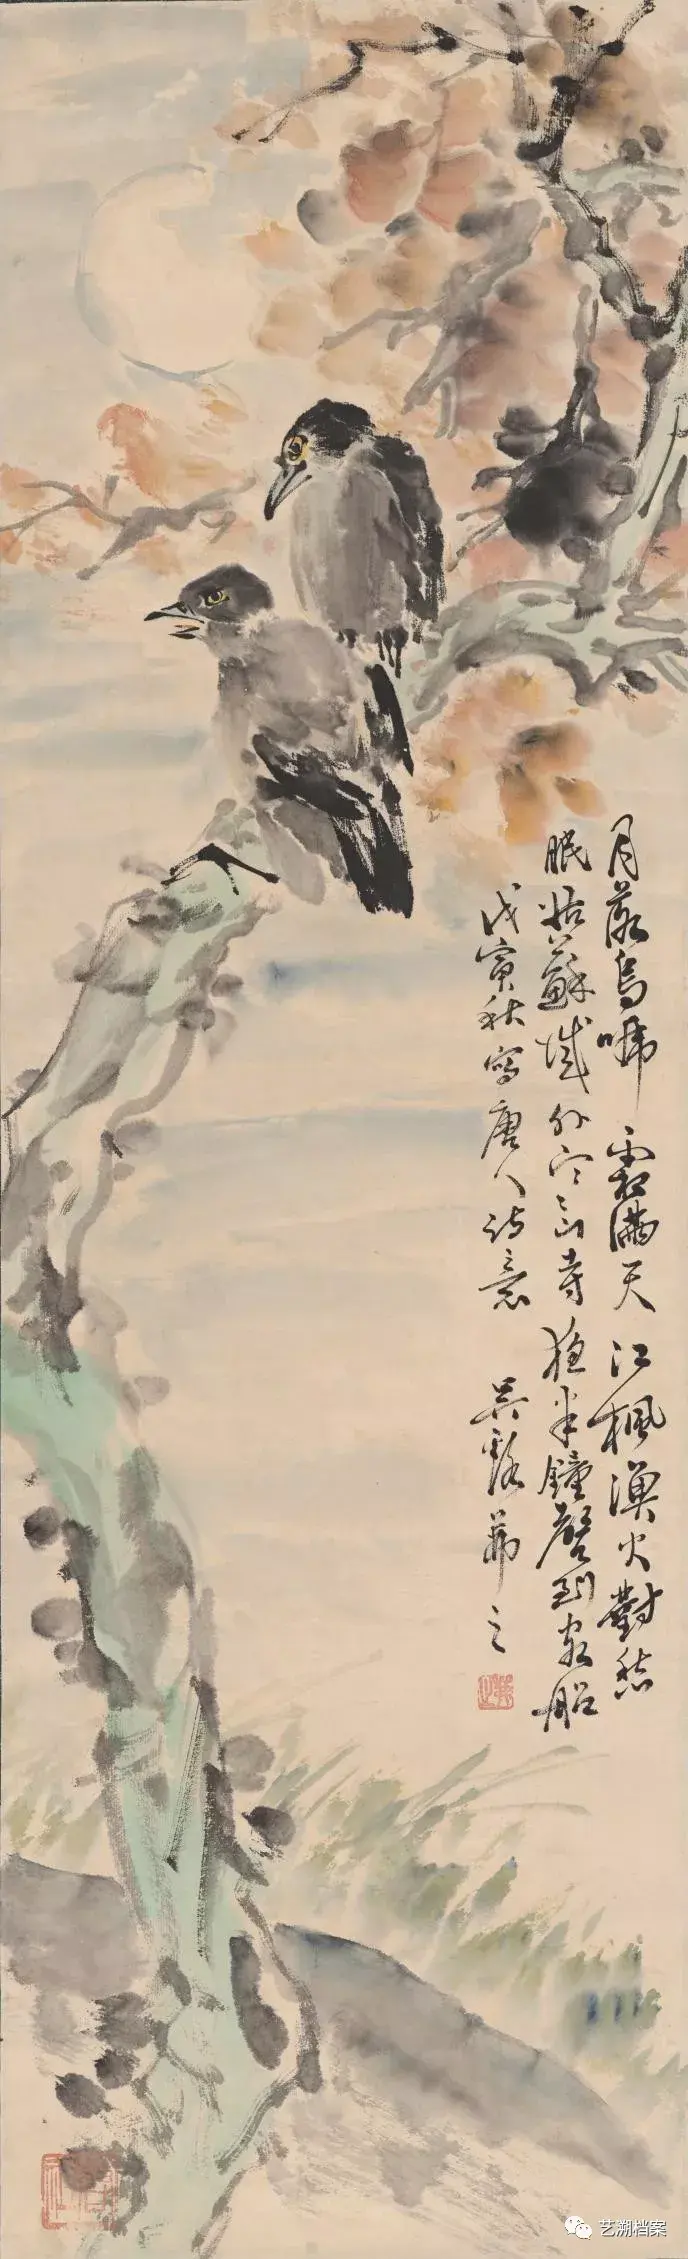 月落烏啼霜滿天江楓漁火對愁
眠姑蘇城外寒山寺夜半鐘聲到客船
戊寅秋寫唐人詩意 吳谿茀之
茀之
艺溯档案